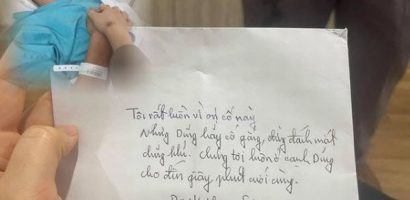 Tôi rất buồn vì sự cố này
Nhưng Dũng hãy cố gắng, đừng đánh mất
dũng khí. Chúng tôi luôn ở cạnh Dũng
cho đến giây phút cuối cùng.